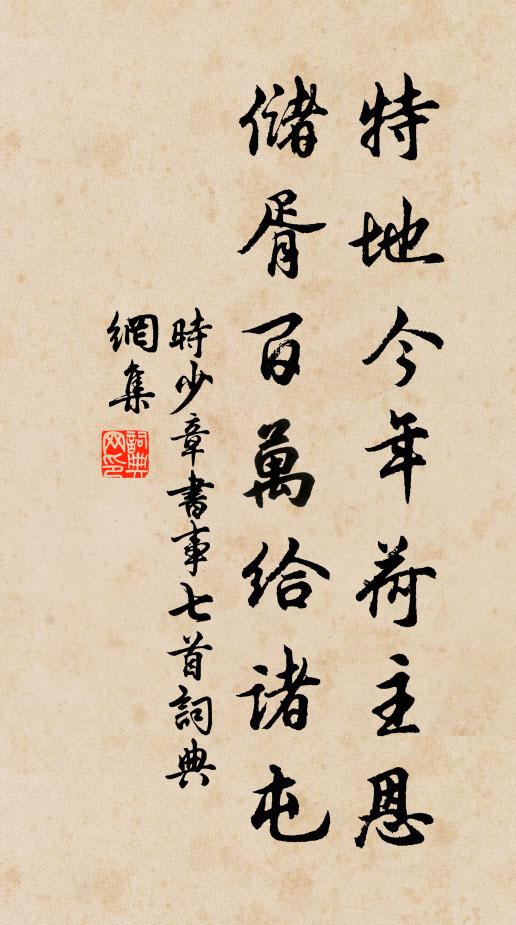 特地今年荷主恩
储胥百萬给诸屯
時少章書事七首詞典
網集
詞典网印